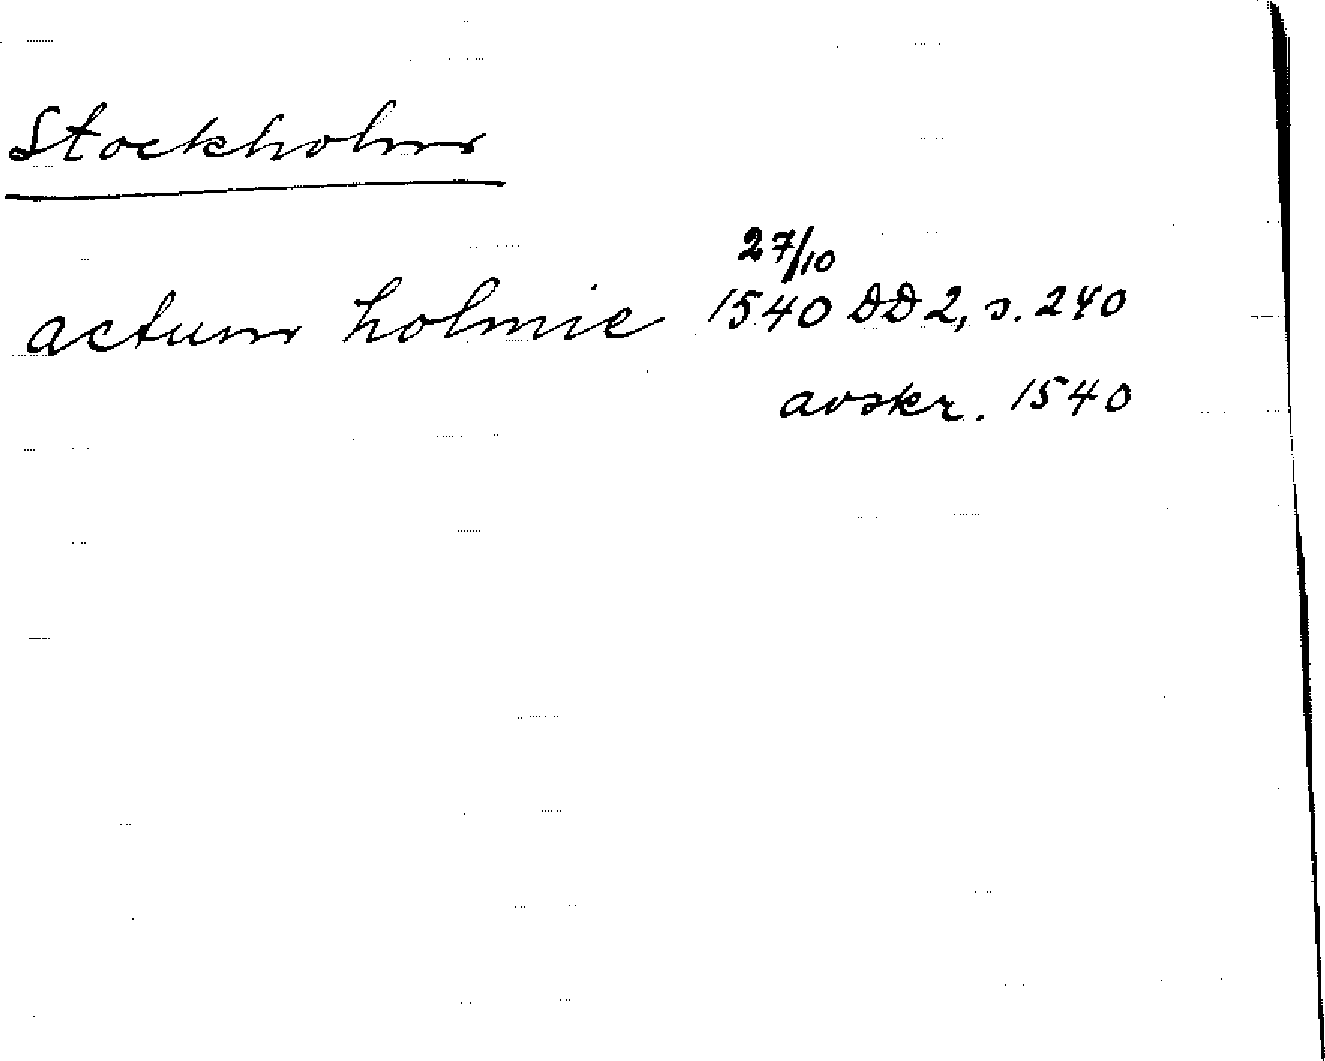 Stockholm
27/10
actum holmie 1540 DD 2, s. 240
avskr. 1540